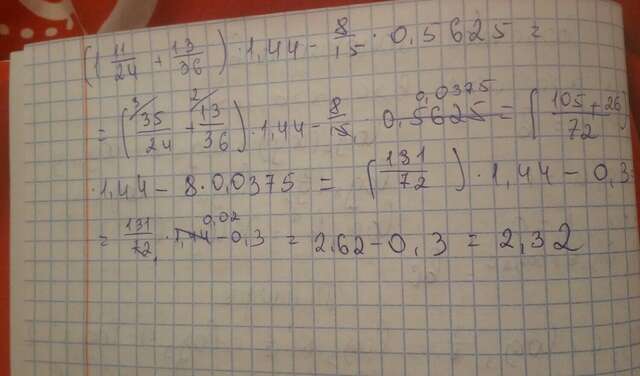 (1 11/24 + 13/36) · 1,44 - 8/15 · 0,5625 =
= (35/24 + 13/36) · 1,44 - 8/15 · 0,5625 0,0375 = (105+26/72)
· 1,44 - 8 · 0,0375 = (131/72) · 1,44 - 0,3
= 131/72 · 1,44 0,02 - 0,3 = 2.62 - 0,3 = 2,32